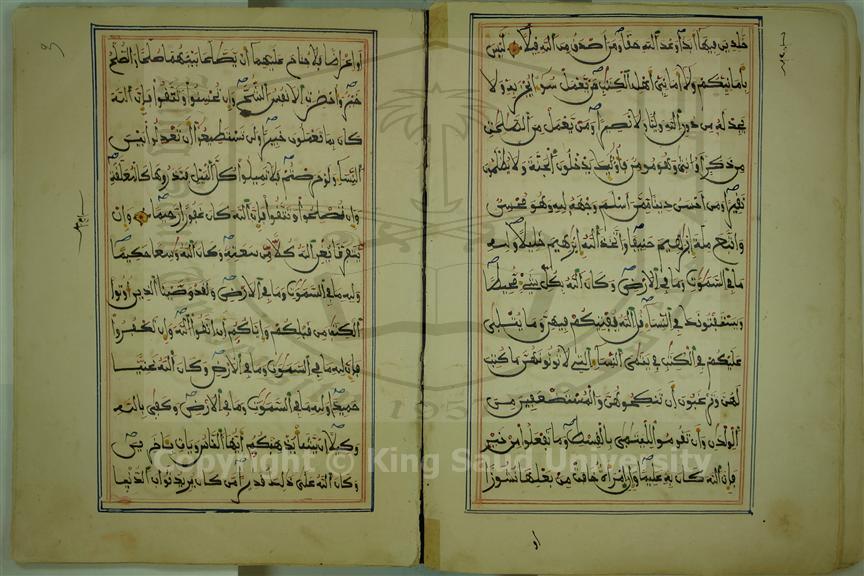 خلدين فيها أبدا وعد الله حقا ومن أصدق من الله قيلا ليس
بأمانيكم ولا أماني أهل الكتب من يعمل سوءا يجز به ولا
يجد له من دون الله وليا ولا نصيرا ومن يعمل من الصلحت
من ذكر أو انثى وهو مومن فأولئك يدخلون الجنة ولا يظلمون
نقيرا ومن أحسن دينا ممن أسلم وجهه لله وهو محسن
واتبع ملة إبرهيم حنيفا واتخذ الله إبرهيم خليلا ولله
ما في السموت وما في الارض وكان الله بكل شيء محيطا
ويستفتونك في النساء قل الله يفتيكم فيهن وما يتلى
عليكم في الكتب في يتمى النساء التي لا توتونهن ما كتب
لهن وترغبون أن تنكحوهن والمستضعفين من
الولدن وأن تقوموا لليتمى بالقسط وما تفعلوا من خير
فإن الله كان به عليما وإن امرأة خافت من بعلها نشوزا
او
أو إعراضا فلا جناح عليهما أن يصلحا بينهما صلحا والصلح
خير وأحضرت الانفس الشح وإن تحسنوا وتتقوا فإن الله
كان بما تعملون خبيرا ولن تستطيعوا أن تعدلوا بين
النساء ولو حرصتم فلا تميلوا كل الميل فتذروها كالمعلقة
وإن تصلحوا وتتقوا فإن الله كان غفورا رحيما وإن
يتفرقا يغن الله كلا من سعته وكان الله وسعا حكيما
ولله ما في السموت وما في الارض ولقد وصينا الذين أوتوا
الكتب من قبلكم وإياكم أن اتقوا الله وإن تكفروا
فإن لله ما في السموت وما في الارض وكان الله غنيا
حميدا ولله ما في السموت وما في الارض وكفى بالله
وكيلا إن يشأ يذهبكم أيها الناس ويات بئاخرين
وكان الله على ذلك قديرا من كان يريد ثواب الدنيا
1957
Copyright © King Saud University